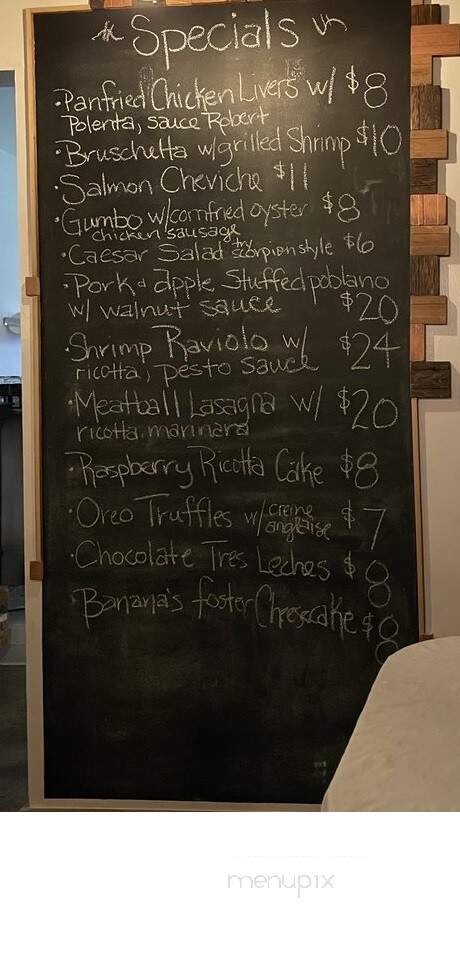 Specials
·Panfried Chicken Livers w/ $8
Polenta, sauce Robert
·Bruschetta w/grilled Shrimp $10
·Salmon Cheviche $11
·Gumbo w/cornfried oyster $8
chicken sausage
·Caesar Salad try scorpion style $6
·Pork & apple Stuffed poblano
w/ walnut sauce $20
·Shrimp Raviolo w/ $24
ricotta, pesto sauce
·Meatball Lasagna w/ $20
ricotta, marinara
·Raspberry Ricotta Cake $8
·Oreo Truffles w/ creme anglaise $7
·Chocolate Tres Leches $8
·Banana's foster Cheesecake $8
menupix